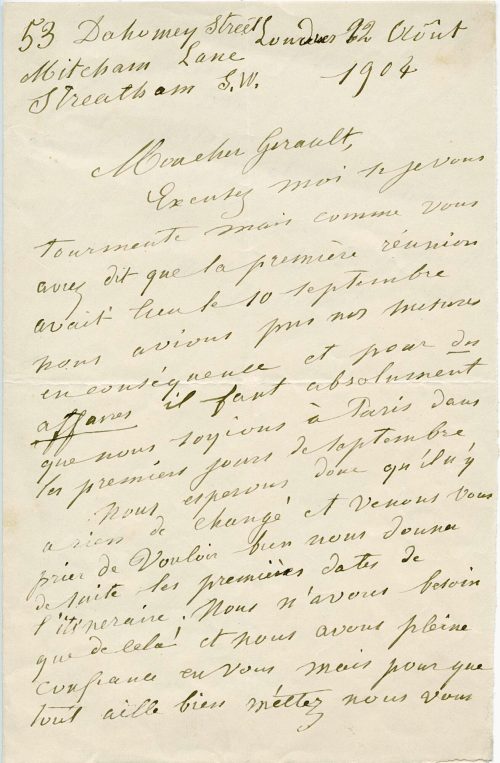 53 Dahomey Street Londres 22 Aôut
Mitcham Lane 1904
Streatham S.W.
Moncher Gerault,
Excusez moi si je vous
tourmente mais comme vous
avez dit que la première réunion
avait lieu le 10 septembre
nous avions pris nos mesures
en conséquence et pour des
affaires il faut absolument
que nous soyions à Paris dans
les premiers jours de septembre
Nous esperons donc qu'il n'y
a rien de changé et venons vous
prier de Vouloir bien nous donner
de suite les premières dates de
l'itineraire. Nous n'avons besoin
que de cela! et nous avons pleine
confiance en vous mais pour que
tout aille bien méttez nous vous